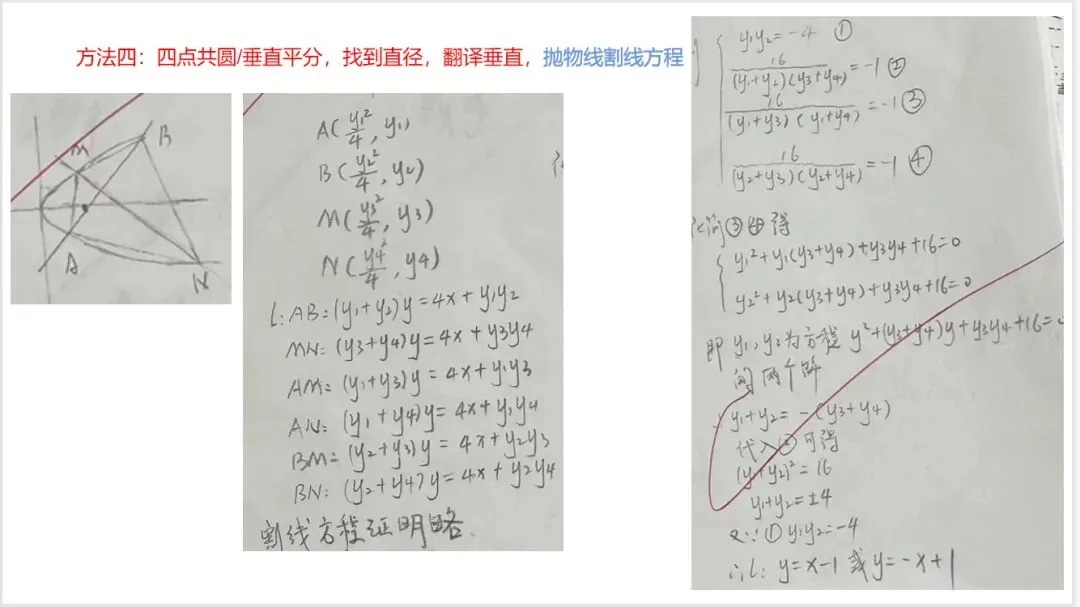 方法四：四点共圆/垂直平分，找到直径，翻译垂直，抛物线割线方程
B
M
A
N
A(y₁²/4, y₁)
B(y₂²/4, y₂)
M(y₃²/4, y₃)
N(y₄²/4, y₄)
l: AB: (y₁+y₂)y=4x+y₁y₂
MN: (y₃+y₄)y=4x+y₃y₄
AM: (y₁+y₃)y=4x+y₁y₃
AN: (y₁+y₄)y=4x+y₁y₄
BM: (y₂+y₃)y=4x+y₂y₃
BN: (y₂+y₄)y=4x+y₂y₄
割线方程证明略.
y₁y₂=-4 ①
16/((y₁+y₂)(y₃+y₄))=-1 ②
16/((y₁+y₃)(y₁+y₄))=-1 ③
16/((y₂+y₃)(y₂+y₄))=-1 ④
化简③④得
y₁²+y₁(y₃+y₄)+y₃y₄+16=0
y₂²+y₂(y₃+y₄)+y₃y₄+16=0
即 y₁,y₂为方程 y²+(y₃+y₄)y+y₃y₄+16=0
的两个解
y₁+y₂=-(y₃+y₄)
代入②可得
(y₁+y₂)²=16
y₁+y₂=±4
又∵①y₁y₂=-4
∴l: y=x-1 或 y=-x+1